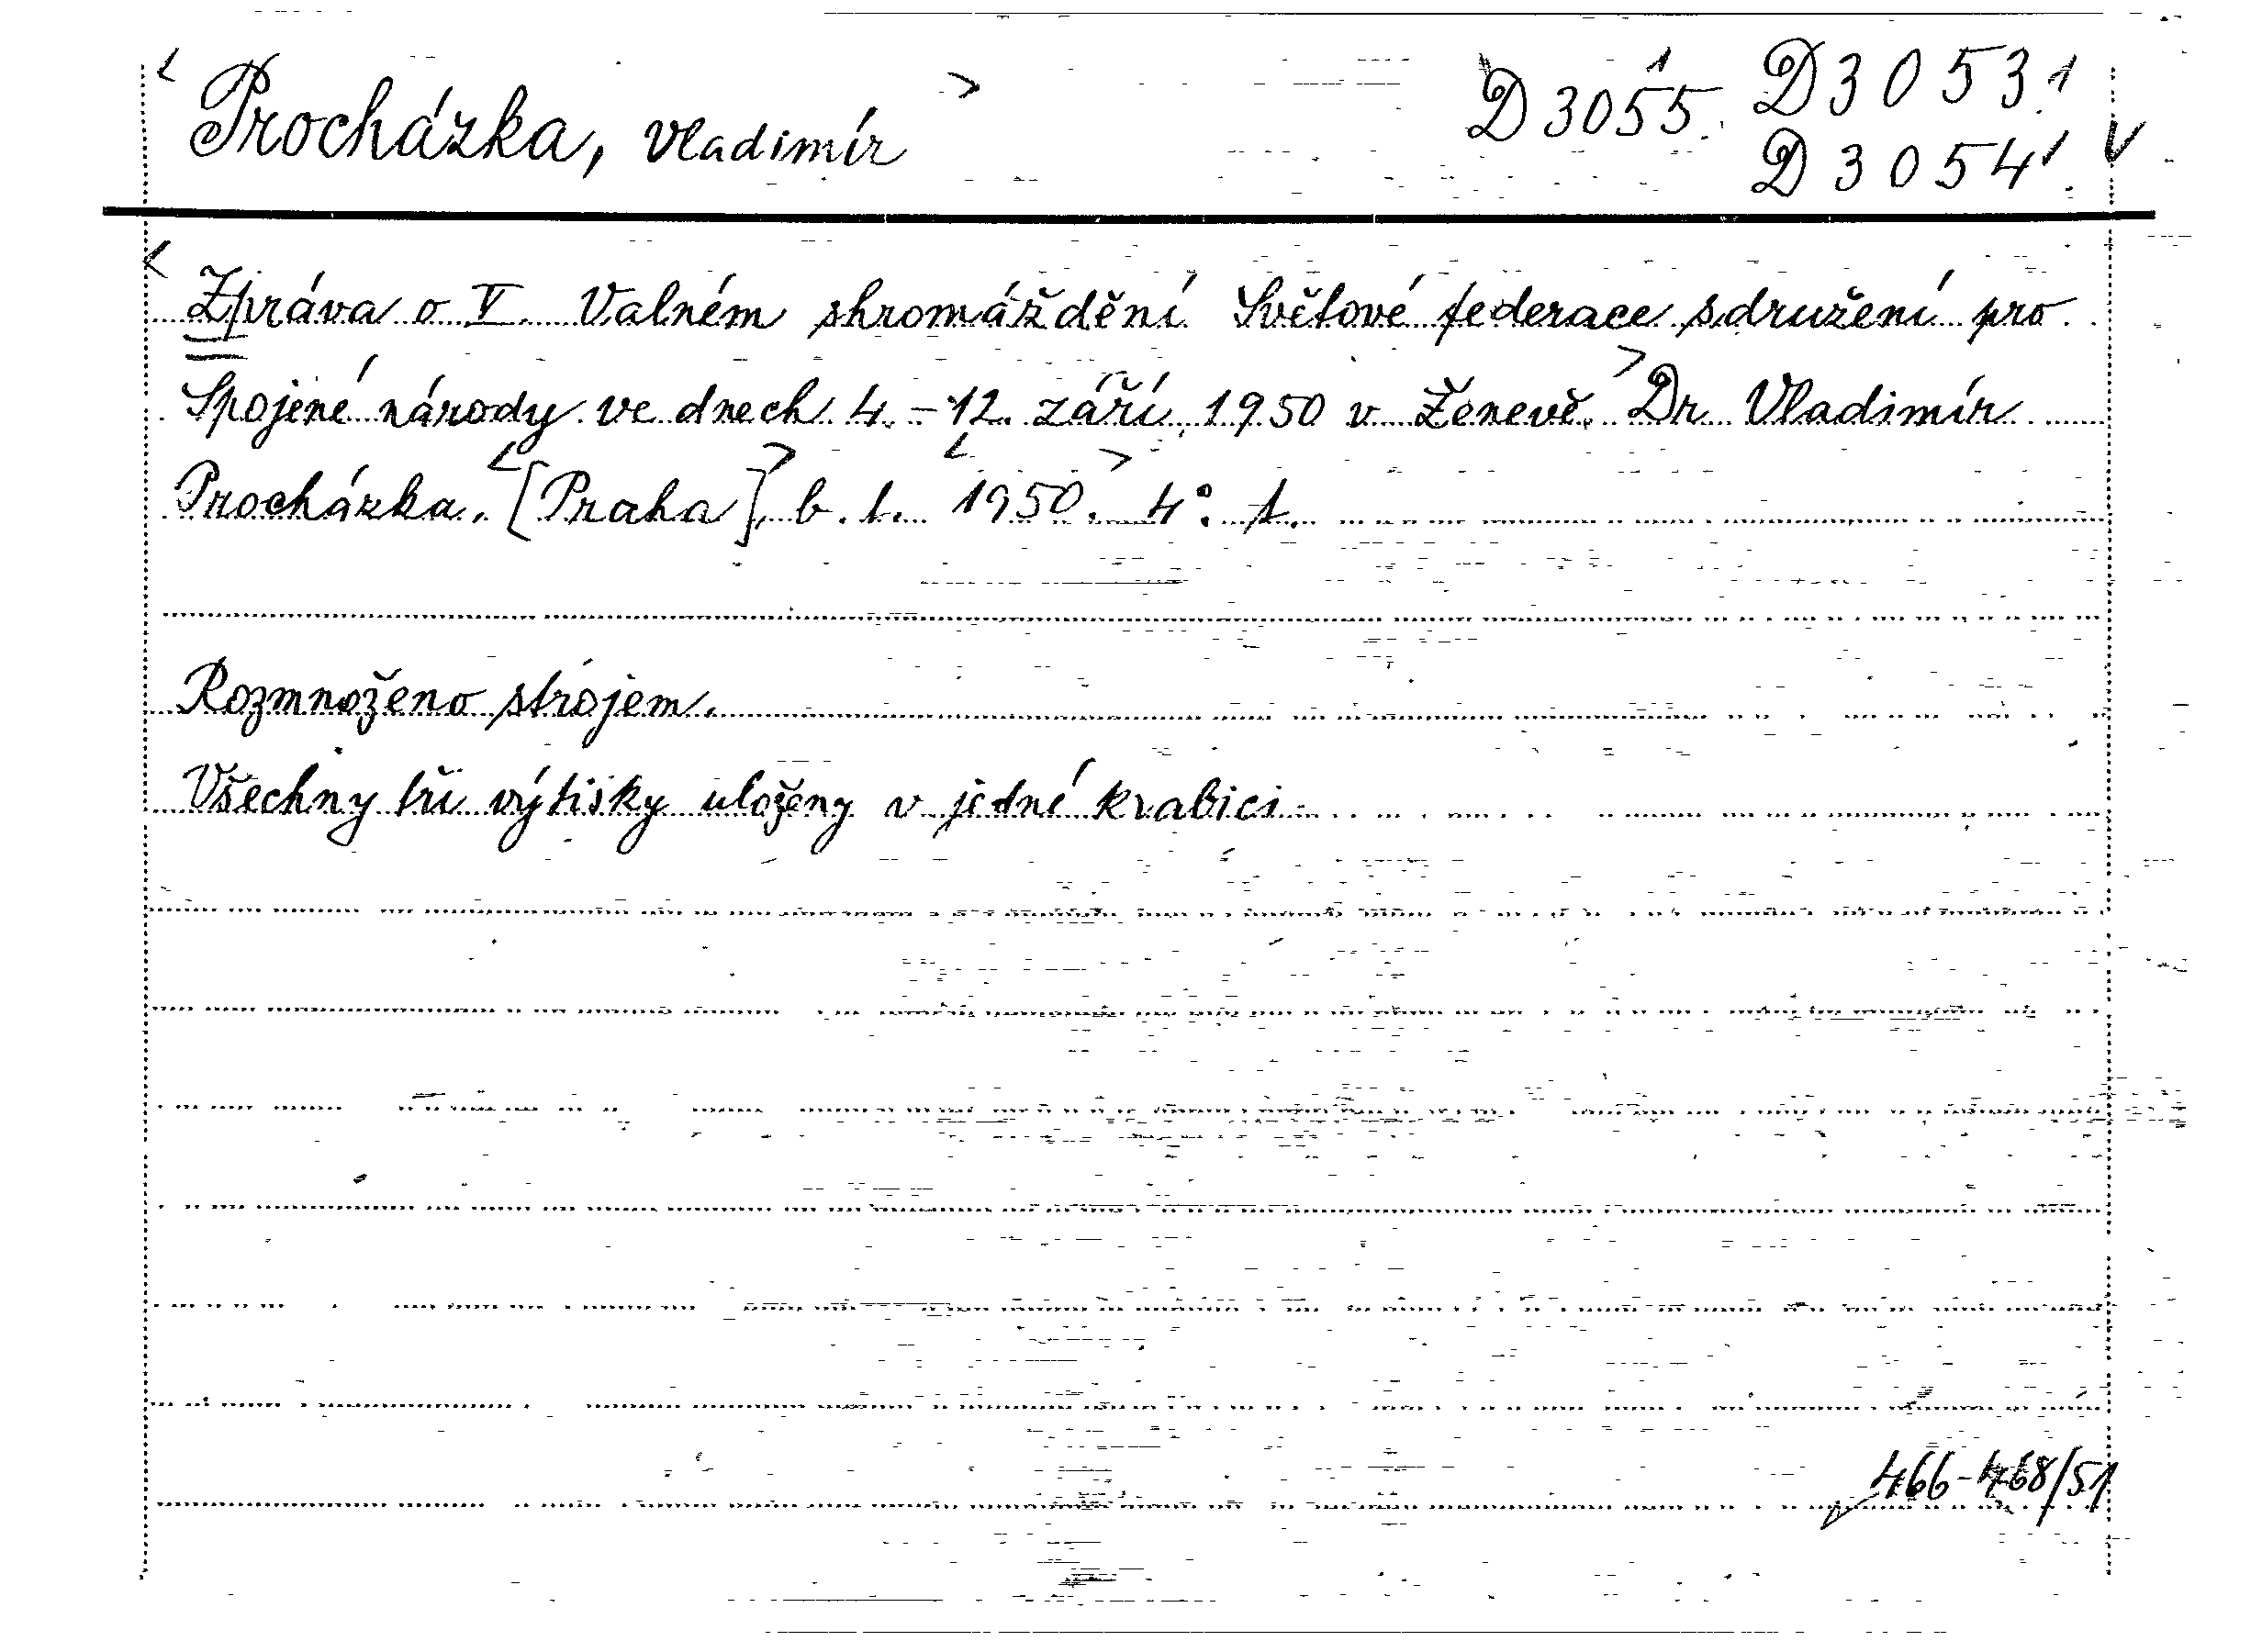 Procházka, Vladimír D 3055. D 3053.
D 3054.
Zpráva o V. Valném shromáždění Světové federace sdružení pro
Spojené národy ve dnech 4. - 12. září 1950 v Ženevě. Dr. Vladimír
Procházka. [Praha], b. t. 1950. 4°.
Rozmnoženo strojem.
Všechny tři výtisky uloženy v jedné krabici
466-468/51